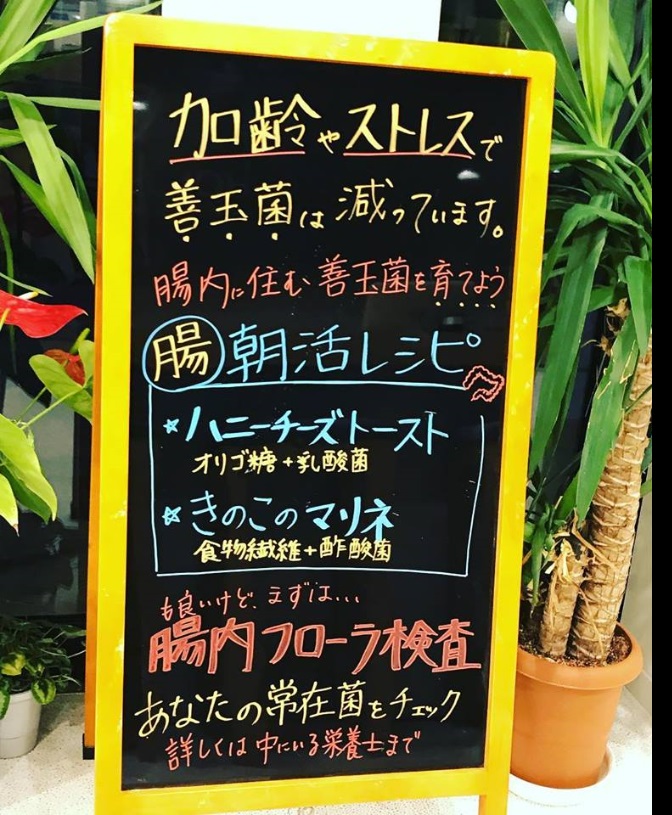 加齢やストレスで
善玉菌は減っています。
腸内に住む善玉菌を育てよう
腸朝活レシピ
☆ハニーチーズトースト
オリゴ糖+乳酸菌
☆きのこのマリネ
食物繊維+酢酸菌
も良いけど、まずは...
腸内フローラ検査
あなたの常在菌をチェック
詳しくは中にいる栄養士まで